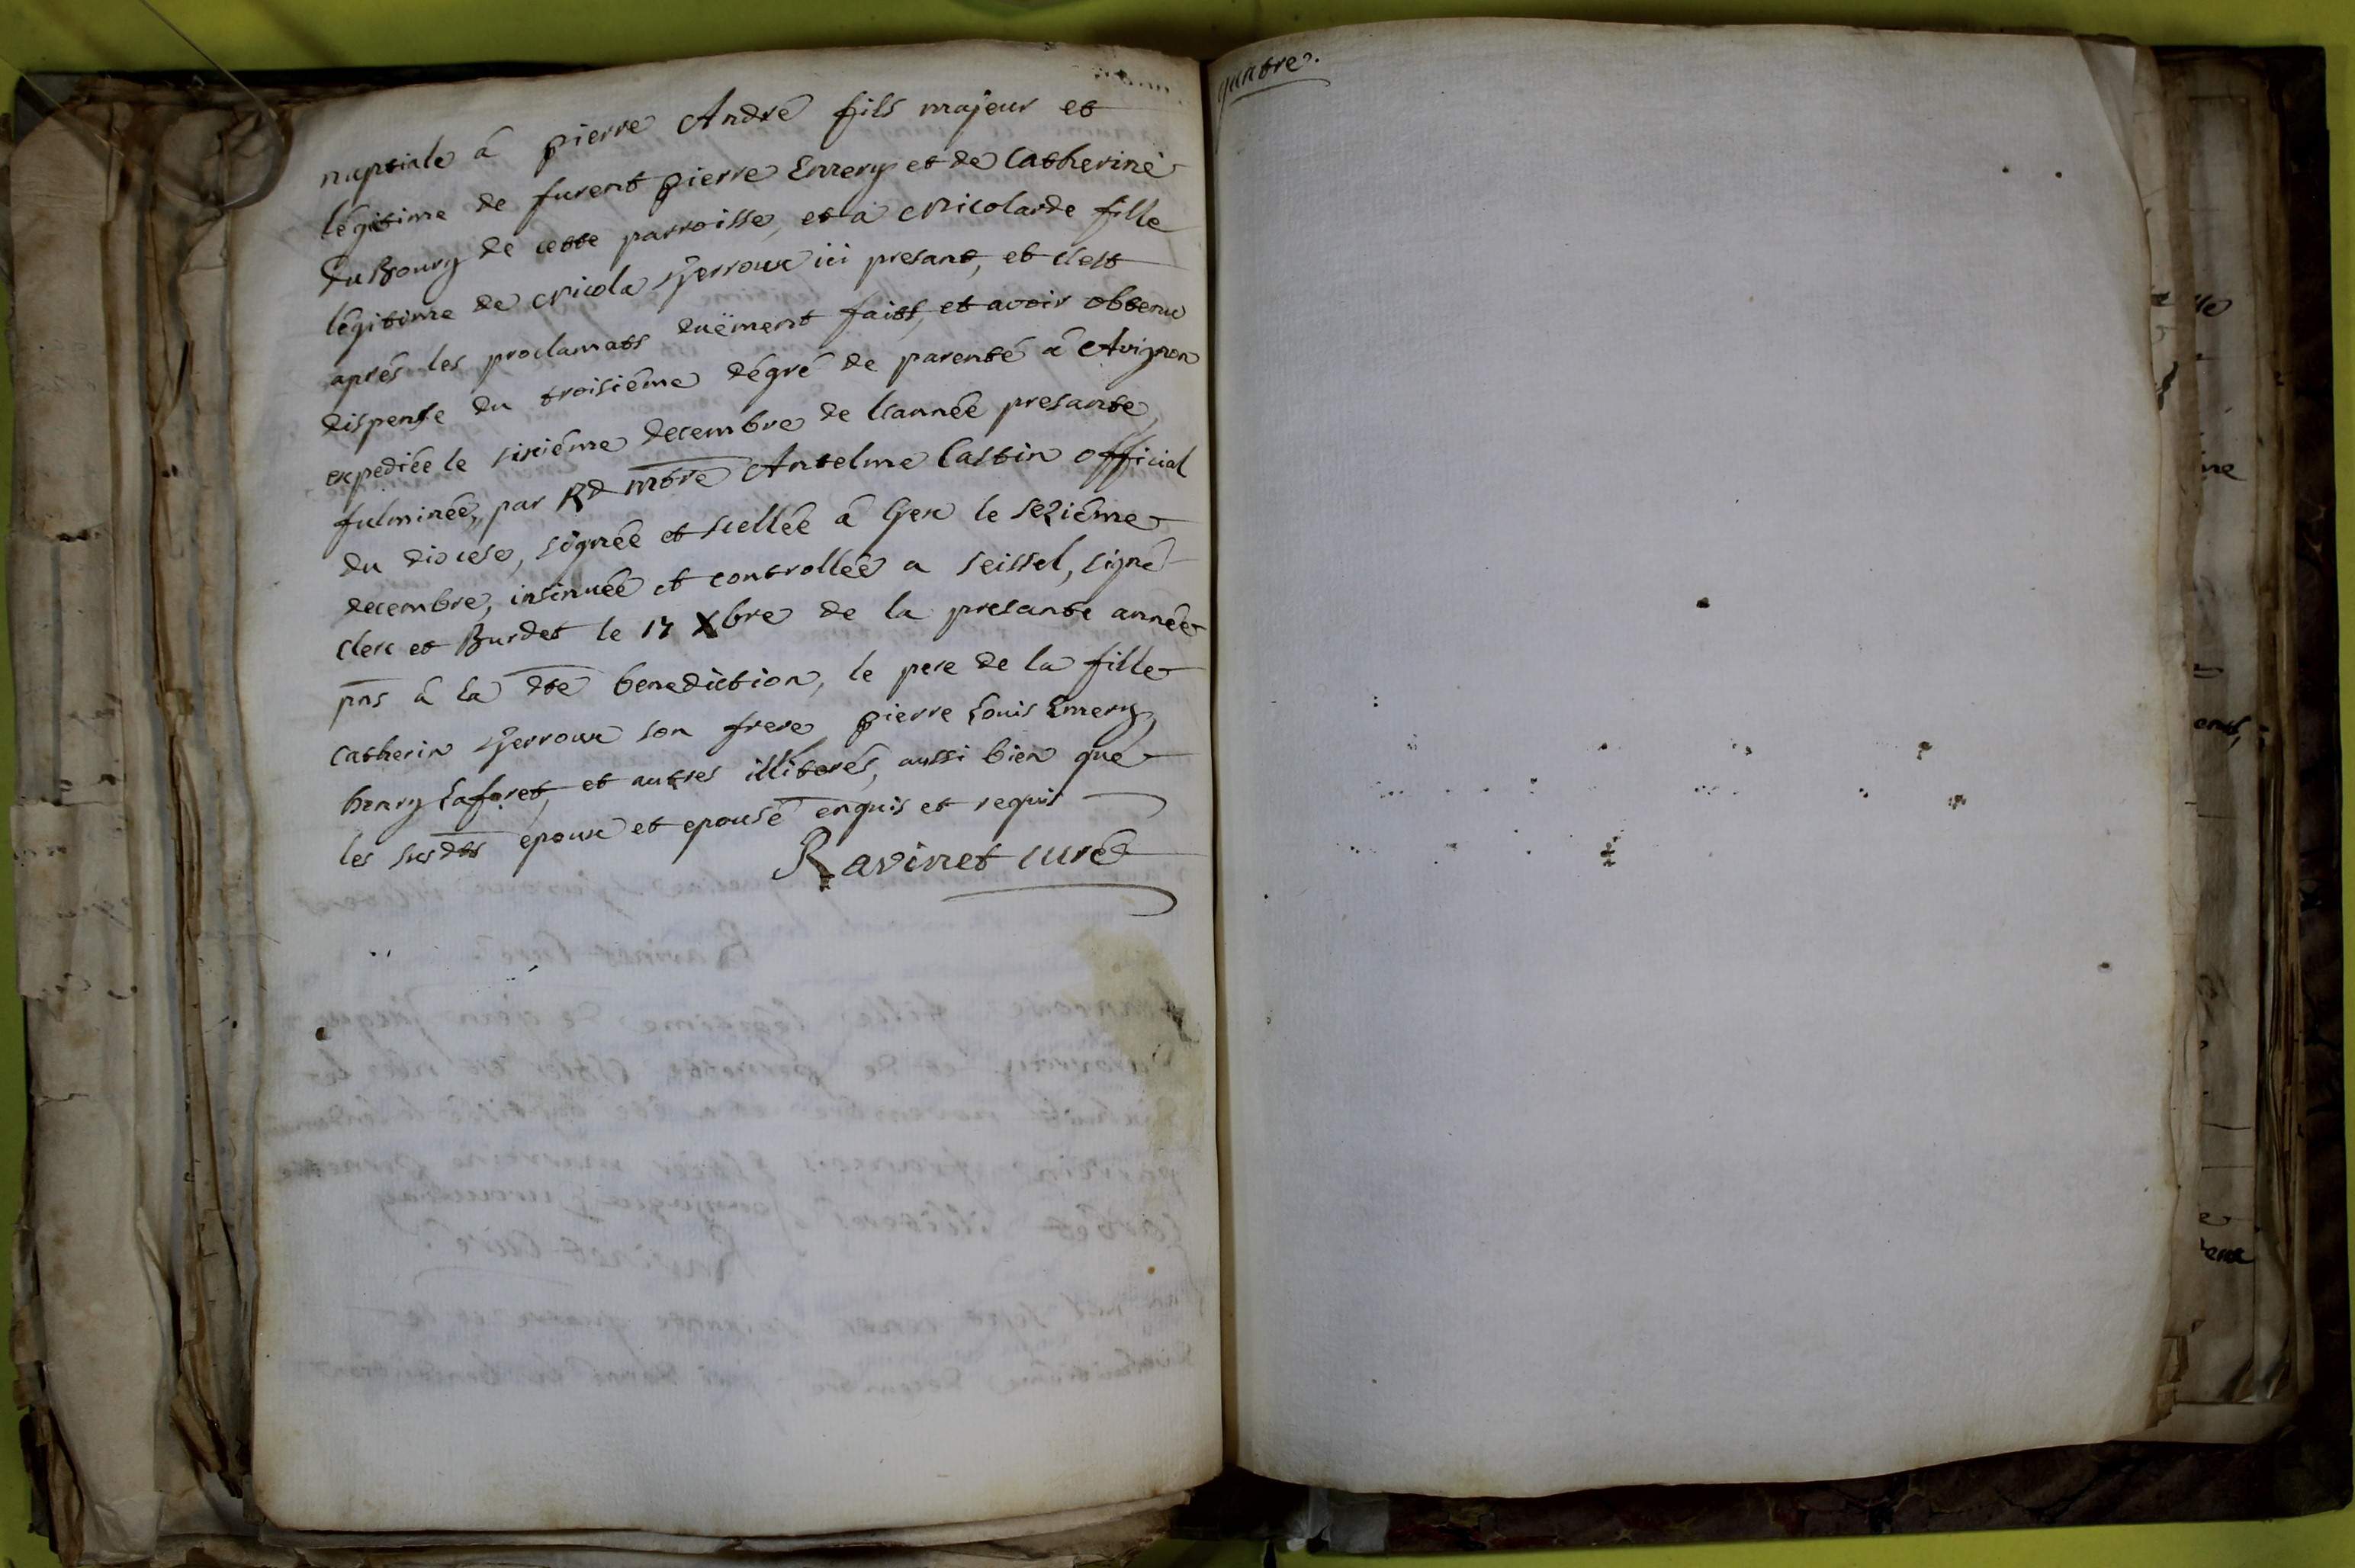 nuptiale â pierre André fils majeur et
légitime de furent pierre Emery et de Catherine
du Bourg de cette parroisse, et â Nicolarde fille
légitime de Nicola Gerroux ici presant, et c'est
aprés les proclamats duëment faits, et avoir obtenu
dispense du troisiéme dégré de parenté â Avignon
expediée le sixiéme decembre de l'année presante,
fulminée, par Rd mbre Antelme Castin official
du diocese, signée et scellée â Gex le seziéme
decembre, insinuée et controllée a seissel, signé
Clerc et Burdet le 17 Xbre de la presante année
pns â la dte benediction, le pere de la fille
Catherin Gerroux son frere, pierre Louis Emery,
henry Laforet, et autres illiterés, aussi bien que
les susdts epoux et epouse enquis et requis
Ravinet curé
quatre.